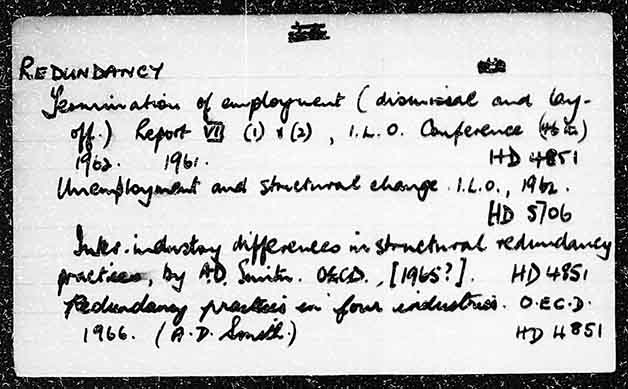 REDUNDANCY
Termination of employment (dismissal and lay-
off.) Report VII (1) & (2), I.L.O. Conference (46th)
1962. 1961. HD 4851
Unemployment and structural change. I.L.O., 1962.
HD 5706
Inter-industry differences in structural redundancy
practices, by A.D. Smith. OECD. [1965?]. HD 4851
Redundancy practices in four industries. O.E.C.D.
1966. (A.D. Smith.) HD 4851